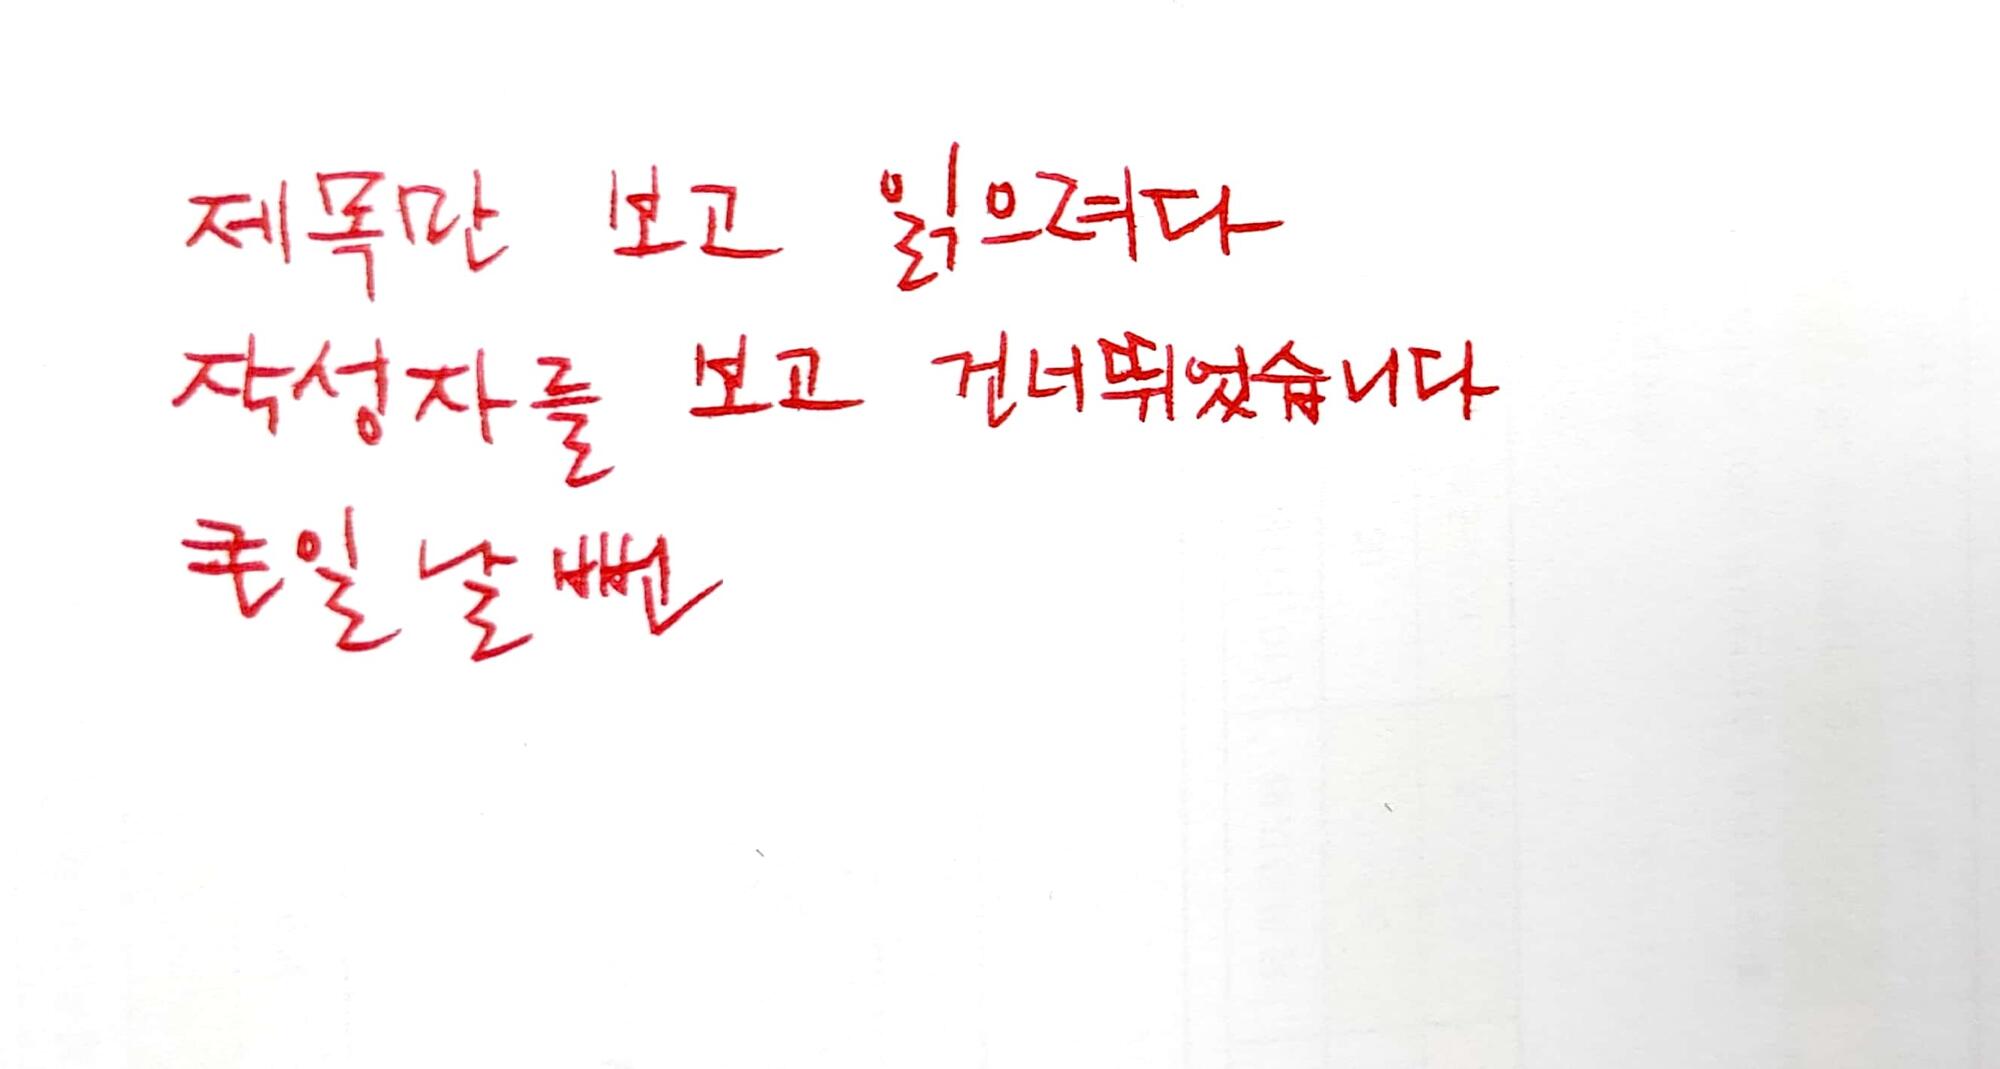 제목만 보고 읽으려다
작성자를 보고 건너뛰었습니다
큰일 날 뻔